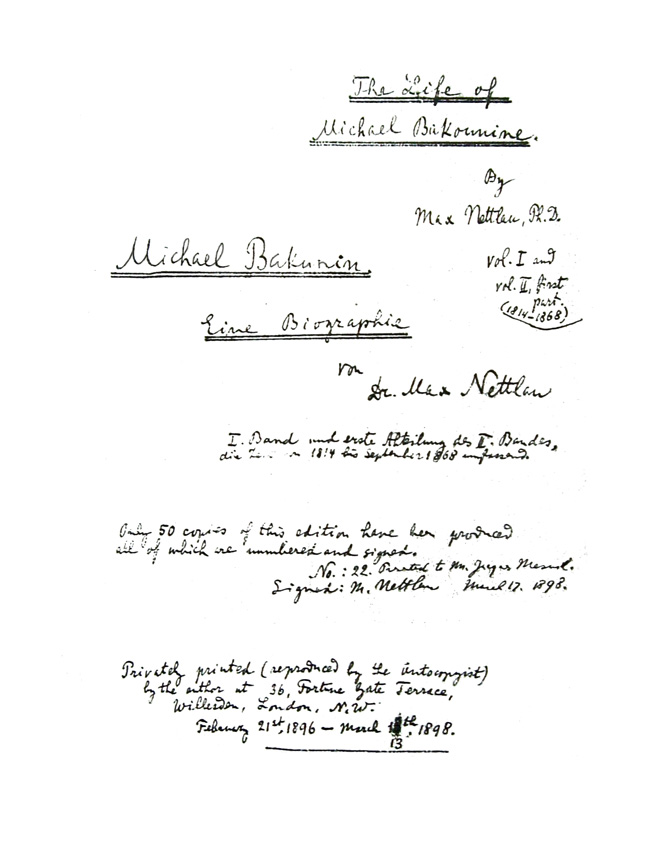 The Life of
Michael Bakounine.
By
Max Nettlau, Ph.D.
vol. I and
vol. II, first
part.
(1814–1868)
Michael Bakunin.
Eine Biographie
von
Dr. Max Nettlau
I. Band und erste Abteilung des II. Bandes,
die 1814 bis September 1868 umfassend.
Only 50 copies of this edition have been produced
all of which are numbered and signed.
No.: 22. to Mr.
Signed: M. Nettlau March 17. 1898.
Privately printed (reproduced by the Autocopyist)
by the author at 36, Fortune Gate Terrace,
Willesden, London, N.W.
February 21st, 1896 – March th, 1898.
13